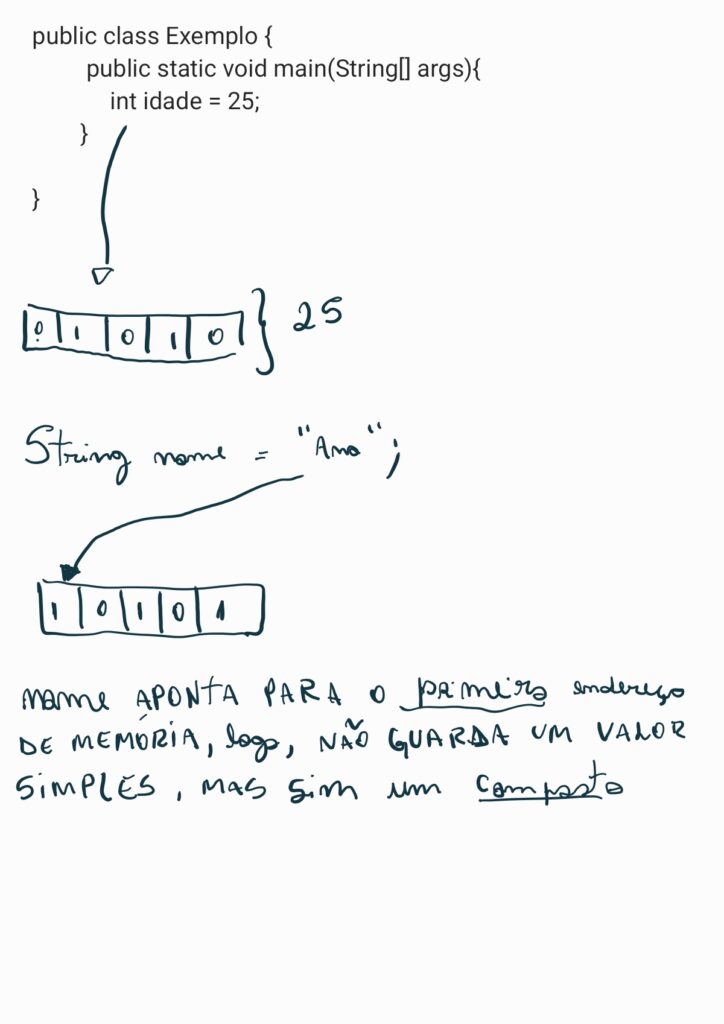 public class Exemplo {
public static void main(String[] args){
int idade = 25;
}
}
0 1 0 1 0 } 25
String name = "Ana";
1 0 1 0 1
name APONTA PARA O primeiro endereço
DE MEMÓRIA, logo, NÃO GUARDA UM VALOR
SIMPLES, MAS sim um composto